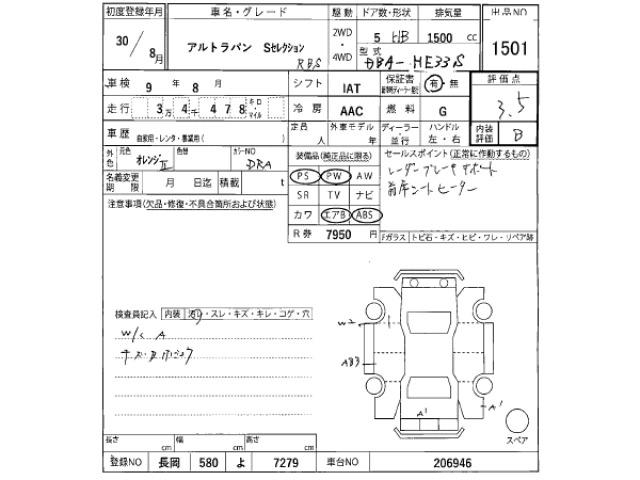 初度登録年月 車名・グレード 駆動 ドア数・形状 排気量 出品NO
30/8月 アルトラパン Sセレクション RBS 2WD・4WD 5 HB 1500 cc 1501
型式 DBA-HE33S
車検 9年8月 シフト IAT 保証書 有・無 評価点 3.5
走行 3万4千478 キロ マイル 冷房 AAC 燃料 G
車歴 自家用・レンタ・事業用( ) 定員 人 外車モデル 年 ディーラー・並行 ハンドル 左・右 内装評価 B
外色 元色 オレンジII 色替 カラーNO DRA 装備品(純正品に限る) セールスポイント(正常に作動するもの)
名義変更期限 月 日迄 積載 t PS PW AW レーダーブレーキサポート
注意事項(欠品・修復・不具合箇所および状態) SR TV ナビ 前席シートヒーター
カワ エアB ABS
R券 7950 円 Fガラス トビ石・キズ・ヒビ・ワレ・リペア跡
検査員記入 内装 汚り・スレ・キズ・キレ・コゲ・穴
W2
W/C A
AB3
A1
A1
スペア
長さ cm 幅 cm 高さ cm
登録NO 長岡 580 よ 7279 車台NO 206946